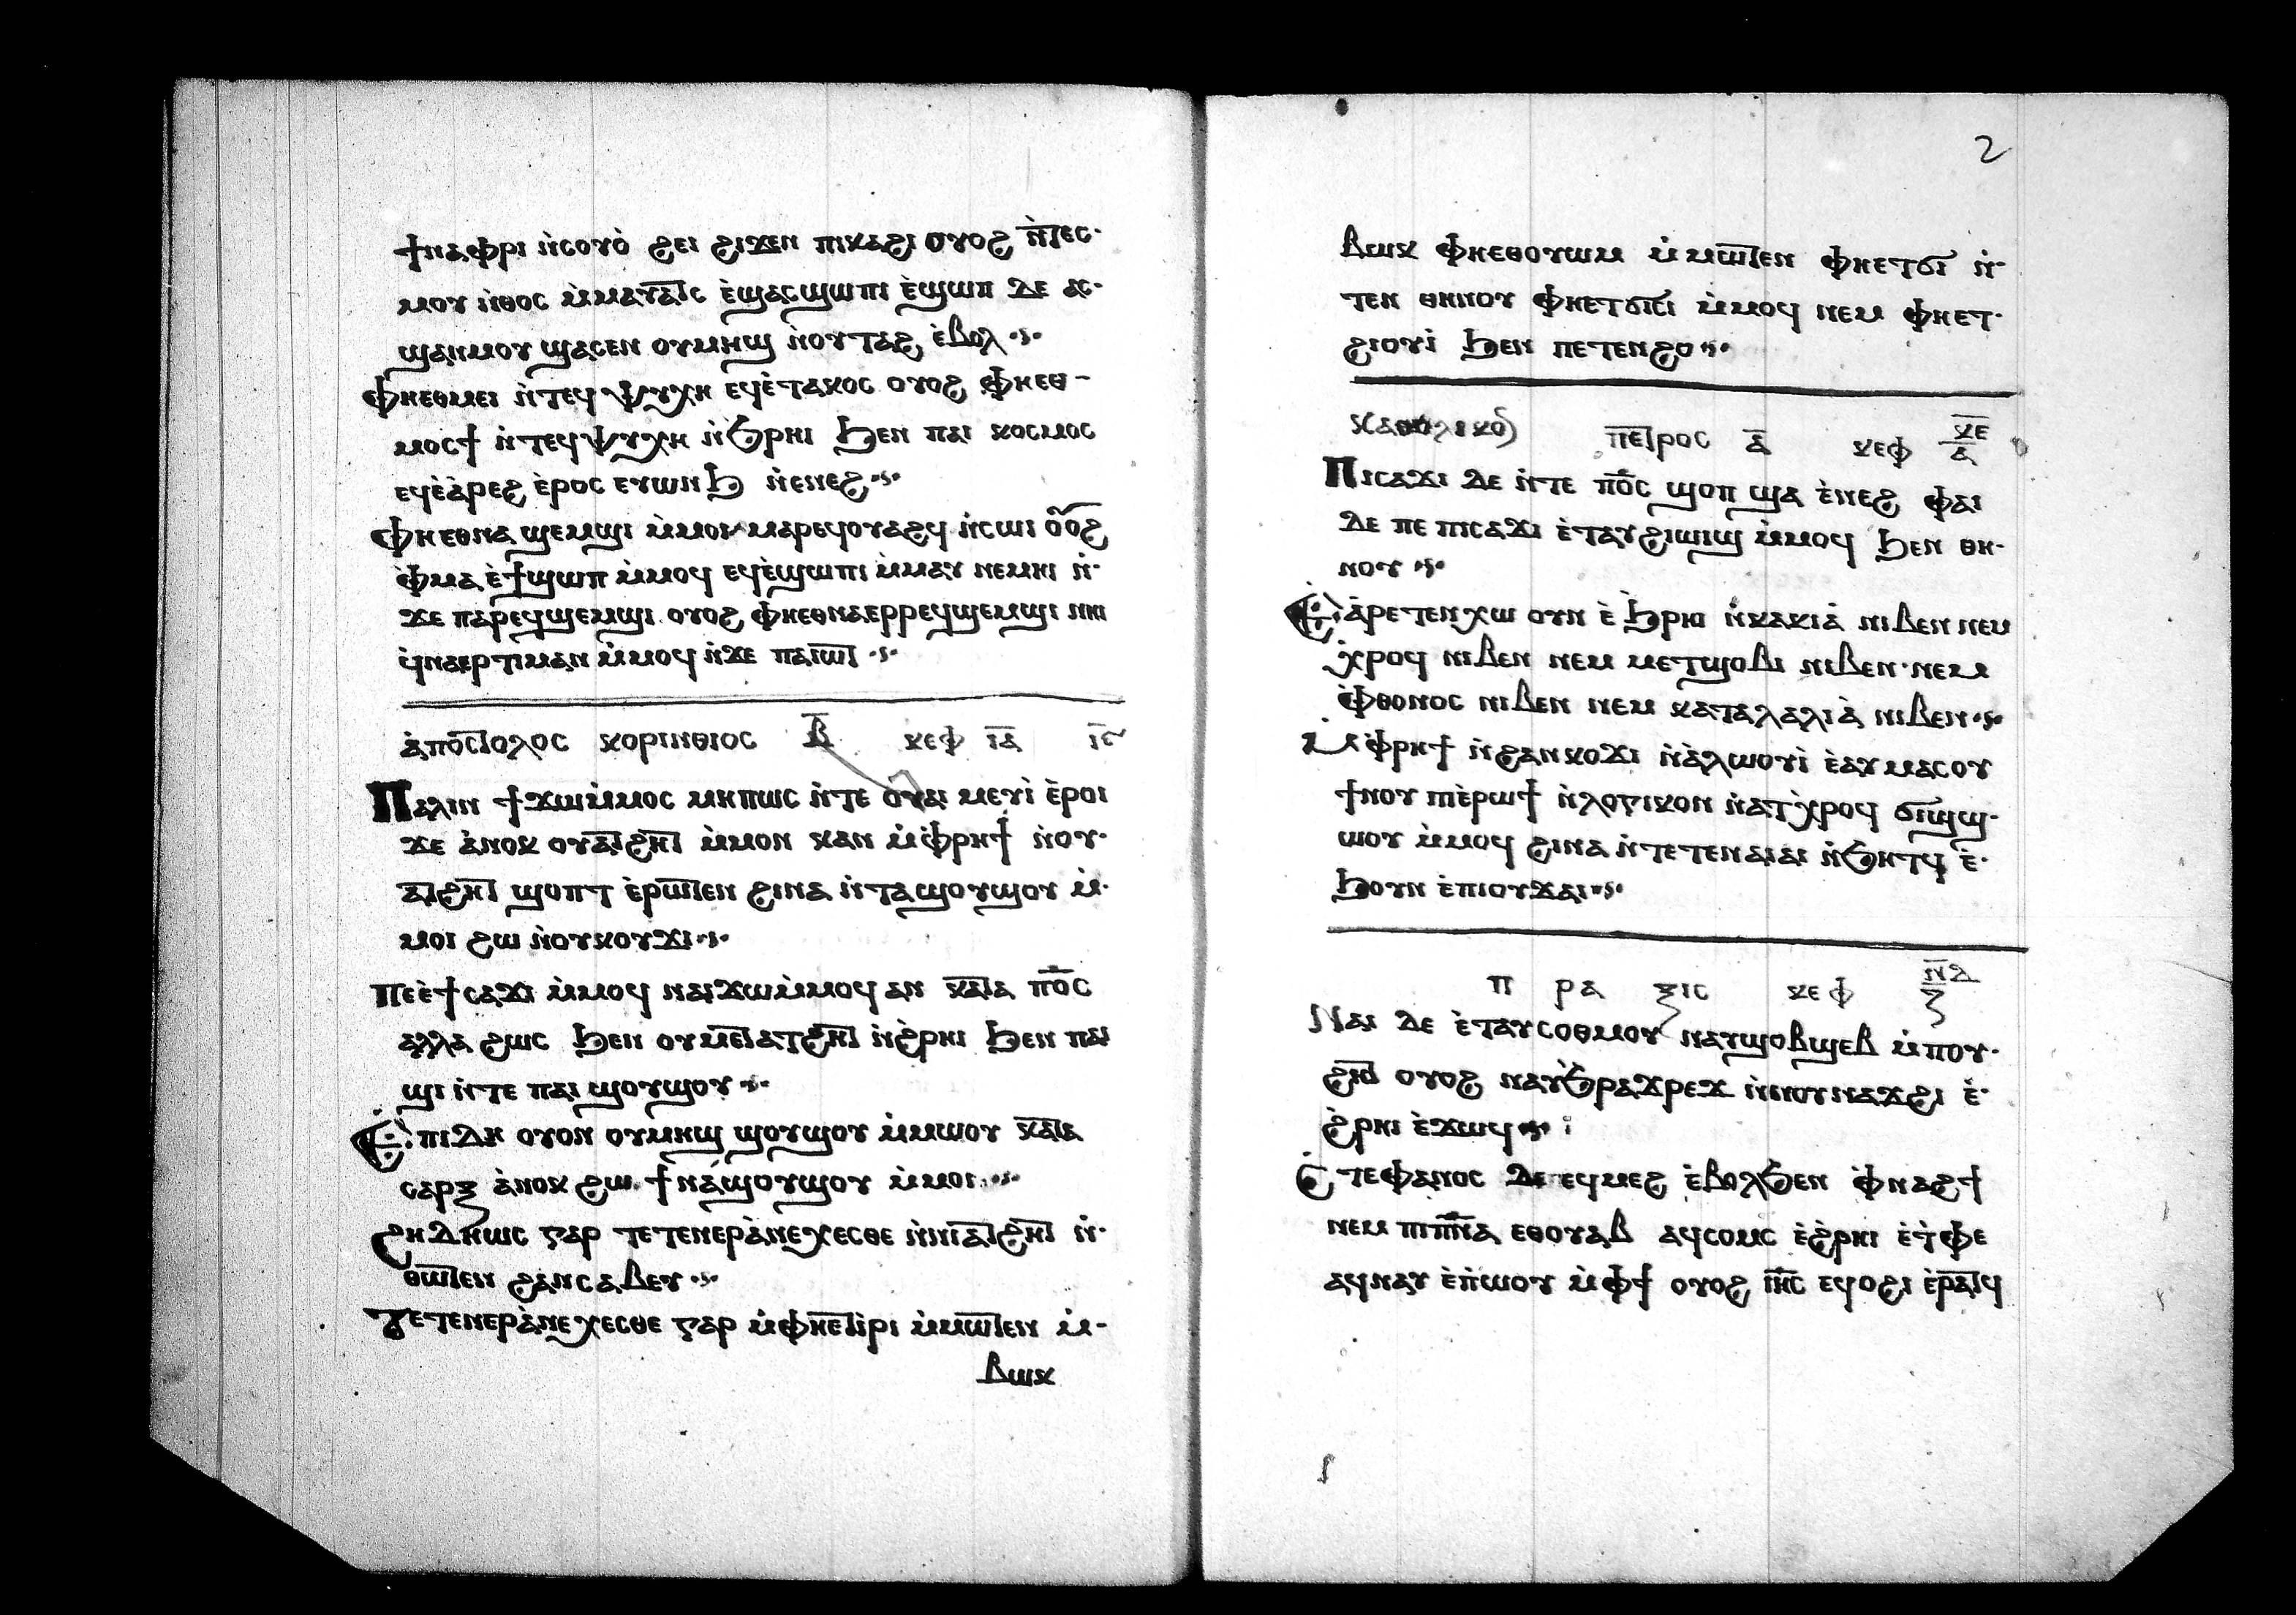 ϯⲛⲁⲫⲣⲓ ⲛ̀ⲥⲟⲩⲟ̀ ϩⲉⲓ ϩⲓϫⲉⲛ ⲡⲓⲕⲁϩⲓ ⲟⲩⲟϩ ⲛ̀ⲧⲉⲥ·
ⲙⲟⲩ ⲛ̀ⲑⲟⲥ ⲙ̀ⲙⲁⲩⲁⲧⲥ ⲉ̀ϣⲁⲥϣⲱⲡⲓ ⲉ̀ϣⲱⲡ ⲇⲉ ⲁⲥ·
ϣⲁⲛⲙⲟⲩ ϣⲁⲥⲉⲛ ⲟⲩⲙⲏϣ ⲛ̀ⲟⲩⲧⲁϩ ⲉ̀ⲃⲟⲗ
ⲫⲏⲉⲑⲙⲉⲓ ⲛ̀ⲧⲉϥⲯⲩⲭⲏ ⲉϥⲉ̀ⲧⲁⲕⲟⲥ ⲟⲩⲟϩ ⲫⲏⲉⲑ-
ⲙⲟⲥϯ ⲛ̀ⲧⲉϥⲯⲩⲭⲏ ⲛ̀ϧⲣⲏⲓ ϧⲉⲛ ⲡⲁⲓ ⲕⲟⲥⲙⲟⲥ
ⲉϥⲉ̀ⲁ̀ⲣⲉϩ ⲉ̀ⲣⲟⲥ ⲉⲩⲱⲛϧ ⲛ̀ⲉⲛⲉϩ
ⲫⲏⲉⲑⲛⲁϣⲉⲙϣⲓ ⲙ̀ⲙⲟⲓ ⲙⲁⲣⲉϥⲟⲩⲁϩϥ ⲛ̀ⲥⲱⲓ ⲟⲩⲟϩ
ⲫ̀ⲙⲁ ⲉ̀ϯϣⲱⲡ ⲙ̀ⲙⲟϥ ⲉϥⲉ̀ϣⲱⲡⲓ ⲙ̀ⲙⲁⲩ ⲛⲉⲙⲏⲓ ⲛ̀·
ϫⲉ ⲡⲁⲣⲉϥϣⲉⲙϣⲓ ⲟⲩⲟϩ ⲫⲏⲉⲑⲛⲁⲉⲣⲣⲉϥϣⲉⲙϣⲓ ⲛⲏⲓ
ϥ̀ⲛⲁⲉⲣⲧⲓⲙⲁⲛ ⲙ̀ⲙⲟϥ ⲛ̀ϫⲉ ⲡⲁⲓⲱⲧ
ⲁ̀ⲡⲟⲥⲧⲟⲗⲟⲥ ⲕⲟⲣⲓⲛⲑⲓⲟⲥ ⲃ̅ ⲕⲉⲫ ⲓ̅ⲁ̅ ⲓ̅ⲋ̅
Ⲡⲁⲗⲓⲛ ϯϫⲱⲙ̀ⲙⲟⲥ ⲙⲏⲡⲱⲥ ⲛ̀ⲧⲉ ⲟⲩⲁⲓ ⲙⲉⲩⲓ̀ ⲉ̀ⲣⲟⲓ
ϫⲉ ⲁ̀ⲛⲟⲕ ⲟⲩⲁⲧϩⲏⲧ ⲙ̀ⲙⲟⲛ ⲕⲁⲛ ⲙ̀ⲫ̀ⲣⲏϯ ⲛ̀ⲟⲩ·
ⲁⲧϩⲏⲧ ϣⲟⲡⲧ ⲉ̀ⲣⲱⲧⲉⲛ ϩⲓⲛⲁ ⲛ̀ⲧⲁϣⲟⲩϣⲟⲩ ⲙ̀·
ⲙⲟⲓ ϩⲱ ⲛ̀ⲟⲩⲕⲟⲩϫⲓ
Ⲡⲉⲉ̀ϯⲥⲁϫⲓ ⲙ̀ⲙⲟϥ ⲛⲁⲓϫⲱⲙ̀ⲙⲟϥ ⲁⲛ ⲕⲁⲧⲁ ⲡⲟ̅ⲥ̅
ⲁⲗⲗⲁ ϩⲱⲥ ϧⲉⲛ ⲟⲩⲙⲉⲧⲁⲧϩⲏⲧ ⲛ̀ϩ̀ⲣⲏⲓ ϧⲉⲛ ⲡⲁⲓ
ϣⲓ ⲛ̀ⲧⲉ ⲡⲁⲓ ϣⲟⲩϣⲟⲩ
Ⲉ̀ⲡⲓⲇⲏ ⲟⲩⲟⲛ ⲟⲩⲙⲏϣ ϣⲟⲩϣⲟⲩ ⲙ̀ⲙⲱⲟⲩ ⲕⲁⲧⲁ
ⲥⲁⲣⲝ ⲁ̀ⲛⲟⲕ ϩⲱ ϯⲛⲁ̀ϣⲟⲩϣⲟⲩ ⲙ̀ⲙⲟⲓ
Ϩⲏⲇⲏⲱⲥ ⲅⲁⲣ ⲧⲉⲧⲉⲛⲉⲣⲁ̀ⲛⲉⲭⲉⲥⲑⲉ ⲛ̀ⲛⲓⲁⲧϩⲏⲧ ⲛ̀·
ⲑⲱⲧⲉⲛ ϩⲁⲛⲥⲁⲃⲉⲩ
Ⲧⲉⲧⲉⲛⲉⲣⲁ̀ⲛⲉⲭⲉⲥⲑⲉ ⲅⲁⲣ ⲙ̀ⲫⲏⲉⲧⲓ̀ⲣⲓ ⲙ̀ⲙⲱⲧⲉⲛ ⲙ̀-
ⲃⲱⲕ
2
ⲃⲱⲕ ⲫⲏⲉⲑⲟⲩⲱⲙ ⲙ̀ⲙⲱⲧⲉⲛ ⲫⲏⲉⲧϭⲓ ⲛ̀·
ⲧⲉⲛ ⲑⲏⲛⲟⲩ ⲫⲏⲉⲧϭⲓⲥⲓ ⲙ̀ⲙⲟϥ ⲛⲉⲙ ⲫⲏⲉⲧ·
ϩⲓⲟⲩⲓ̀ ϧⲉⲛ ⲡⲉⲧⲉⲛϩⲟ
ⲕⲁⲑⲟⲗⲓⲕⲟⲛ ⲡⲉⲧⲣⲟⲥ ⲁ̅ ⲕⲉⲫ ⲕ̅ⲉ̅ ⲁ̅
Ⲡⲓⲥⲁϫⲓ ⲇⲉ ⲛ̀ⲧⲉ ⲡⲟ̅ⲥ̅ ϣⲟⲡ ϣⲁ ⲉ̀ⲛⲉϩ ⲫⲁⲓ
ⲇⲉ ⲡⲉ ⲡⲓⲥⲁϫⲓ ⲉ̀ⲧⲁⲩϩⲓⲱⲓϣ ⲙ̀ⲙⲟϥ ϧⲉⲛ ⲑⲏ·
ⲛⲟⲩ
Ⲉ̀ⲁ̀ⲣⲉⲧⲉⲛⲭⲱ ⲟⲩⲛ ⲉ̀ϧⲣⲏⲓ ⲛ̀ⲕⲁⲕⲓⲁ̀ ⲛⲓⲃⲉⲛ ⲛⲉⲙ
ⲭ̀ⲣⲟϥ ⲛⲓⲃⲉⲛ ⲛⲉⲙ ⲙⲉⲧϣⲟⲃⲓ ⲛⲓⲃⲉⲛ·ⲛⲉⲙ
ⲫ̀ⲑⲟⲛⲟⲥ ⲛⲓⲃⲉⲛ ⲛⲉⲙ ⲕⲁⲧⲁⲗⲁⲗⲓⲁ̀ ⲛⲓⲃⲉⲛ
Ⲙ̀ⲫ̀ⲣⲏϯ ⲛ̀ϩⲁⲛⲕⲟϫⲓ ⲛ̀ⲁ̀ⲗⲱⲟⲩⲓ̀ ⲉ̀ⲁⲩⲙⲁⲥⲟⲩ
ϯⲛⲟⲩ ⲡⲓⲉ̀ⲣⲱϯ ⲛ̀ⲗⲟⲅⲓⲕⲟⲛ ⲛ̀ⲁⲧⲭ̀ⲣⲟϥ ϭⲓϣϣ·
ⲱⲟⲩ ⲙ̀ⲙⲟϥ ϩⲓⲛⲁ ⲛ̀ⲧⲉⲧⲉⲛⲁⲓⲁⲓ ⲛ̀ϧⲏⲧϥ ⲉ̀·
ϧⲟⲩⲛ ⲉ̀ⲡⲓⲟⲩϫⲁⲓ
ⲡ ⲣⲁ ⲝⲓⲥ ⲕⲉⲫ ⲛ̅ⲇ̅ ⲍ
Ⲛⲁⲓ ⲇⲉ ⲉ̀ⲧⲁⲩⲥⲟⲑⲙⲟⲩ ⲛⲁⲩϣⲟⲃϣⲉⲃ ⲙ̀ⲡⲟⲩ·
ϩⲏⲧ ⲟⲩⲟϩ ⲛⲁⲩϧⲣⲁϫⲣⲉϫ ⲛ̀ⲛⲟⲩⲛⲁϫϩⲓ ⲉ̀·
ϩ̀ⲣⲏⲓ ⲉ̀ϫⲱϥ
Ⲥⲧⲉⲫⲁⲛⲟⲥ ⲇⲉ ⲉϥⲙⲉϩ ⲉ̀ⲃⲟⲗϧⲉⲛ ⲫ̀ⲛⲁϩϯ
ⲛⲉⲙ ⲡⲓⲡ̅ⲛ̅ⲁ̅ ⲉⲑⲟⲩⲁⲃ ⲁϥⲥⲟⲙⲥ ⲉ̀ϩ̀ⲣⲏⲓ ⲉ̀ⲧ̀ⲫⲉ
ⲁϥⲛⲁⲩ ⲉ̀ⲡ̀ⲱⲟⲩ ⲙ̀ⲫϯ ⲟⲩⲟϩ ⲓⲏ̅ⲥ̅ ⲉϥⲟϩⲓ ⲉ̀ⲣⲁⲧϥ